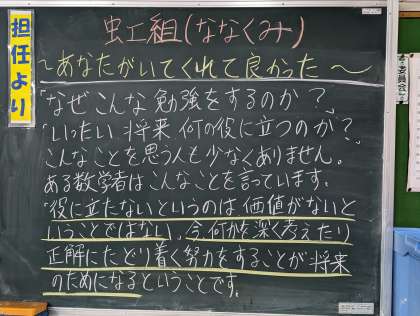 担任より
虹組(ななくみ)
～あなたがいてくれて良かった～
「なぜこんな勉強をするのか?」
「いったい将来何の役に立つのか?」
こんなことを思う人も少なくありません。
ある数学者はこんなことを言っています。
「役に立たないというのは価値がないと
いうことではない。今、何かを深く考えたり
正解にたどり着く努力をすることが将来
のためになるということです。